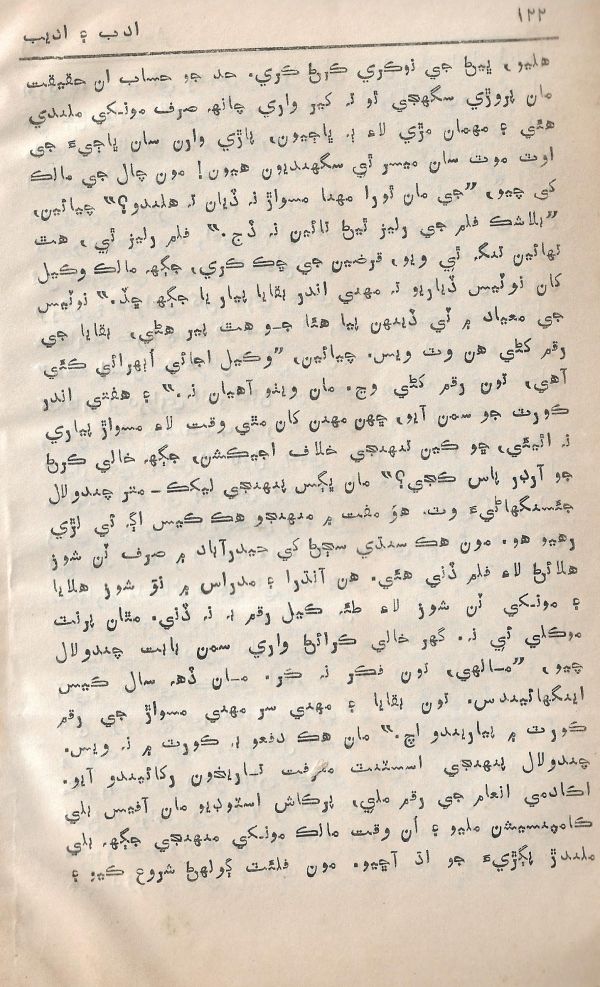 ۱۲۲
ادب ۽ اديب
هليو، ڀيڻ جي نوڪري ڪرڻ ڪري. حد جو حساب ان حقيقت
مان پروڙي سگهجي ٿو تہ کير واري چانهہ صرف مونکي ملندي
هئي ۽ مهمان مڙي لاءِ بہ ڀاڄيون، پاڙي وارن سان ڀاڄيءَ جي
اوٽ موٽ سان ميسر ٿي سگهنديون هيون! مون چال جي مالڪ
کي چيو، ”جي مان ٿورا مهنا مسواڙ نہ ڏيان تہ هلندو؟“ چيائين،
”بلاشڪ فلم جي رليز ٿيڻ تائين نہ ڏج.“ فلم رليز ٿي، هٿ
تهائين تنگہ ٿي ويو، قرضين جي چڪ ڪري، جڳهہ مالڪ وڪيل
کان نوٽيس ڏياريو تہ مهني اندر بقايا ڀيار يا جڳهہ ڇڏ.“ نوٽيس
جي معياد ۾ ٽي ڏينهن پيا هئا جو هٿ ڀير هڻي، بقايا جي
رقم کڻي هن وٽ ويس. چيائين، ”وڪيل اجائي اُٻهرائي ڪئي
آهي، تون رقم کڻي وڃ. مان ويٺو آهيان نہ.“ ۽ هفتي اندر
ڪورٽ جو سمن آيو، ڇهن مهنن کان مٿي وقت لاءِ مسواڙ ڀياري
نہ اٿيئي، ڇو ڪين تنهنجي خلاف اجيڪشن، جڳهہ خالي ڪرڻ
جو آرڊر پاس ڪجي؟“ مان ڀڳس پنهنجي ليکڪ – متر چندولال
جئسنگهاڻيءَ وٽ. هوُ مفت ۾ منهنجو هڪ ڪيس اڳ ئي لڙي
رهيو هو. مون هڪ سنڌي سڄڻ کي حيدرآباد ۾ صرف ٽن شوز
هلائڻ لاءِ فلم ڏني هئي. هن آنڌرا ۽ مدراس ۾ نوَ شوز هلايا
۽ مونکي ٽن شوز لاءِ طئہ ڪيل رقم بہ نہ ڏني. مٿان پرنٽ
موڪلي ئي نہ. گهر خالي ڪرائڻ واري سمن بابت چندولال
چيو، ”مالهي، تون فڪر نہ ڪر. مان ڏهہ سال ڪيس
اينگهائيندس. تون بقايا ۽ مهني سر مهني مسواڙ جي رقم
ڪورٽ ۾ ڀياريندو اچ.“ مان هڪ دفعو بہ ڪورٽ ۾ نہ ويس.
چندولال پنهنجي اسسٽنٽ معرفت تاريخون رکائيندو آيو.
اڪادمي انعام جي رقم ملي، پرڪاش اسٽوڊيو مان آفيس بلي
ڪامپنسيشن مليو ۽ اُن وقت مالڪ مونکي منهنجي جڳهہ بلي
ملندڙ پگڙيءَ جو اڌ آڇيو. مون فلئٽ ڳولهڻ شروع ڪيو ۽